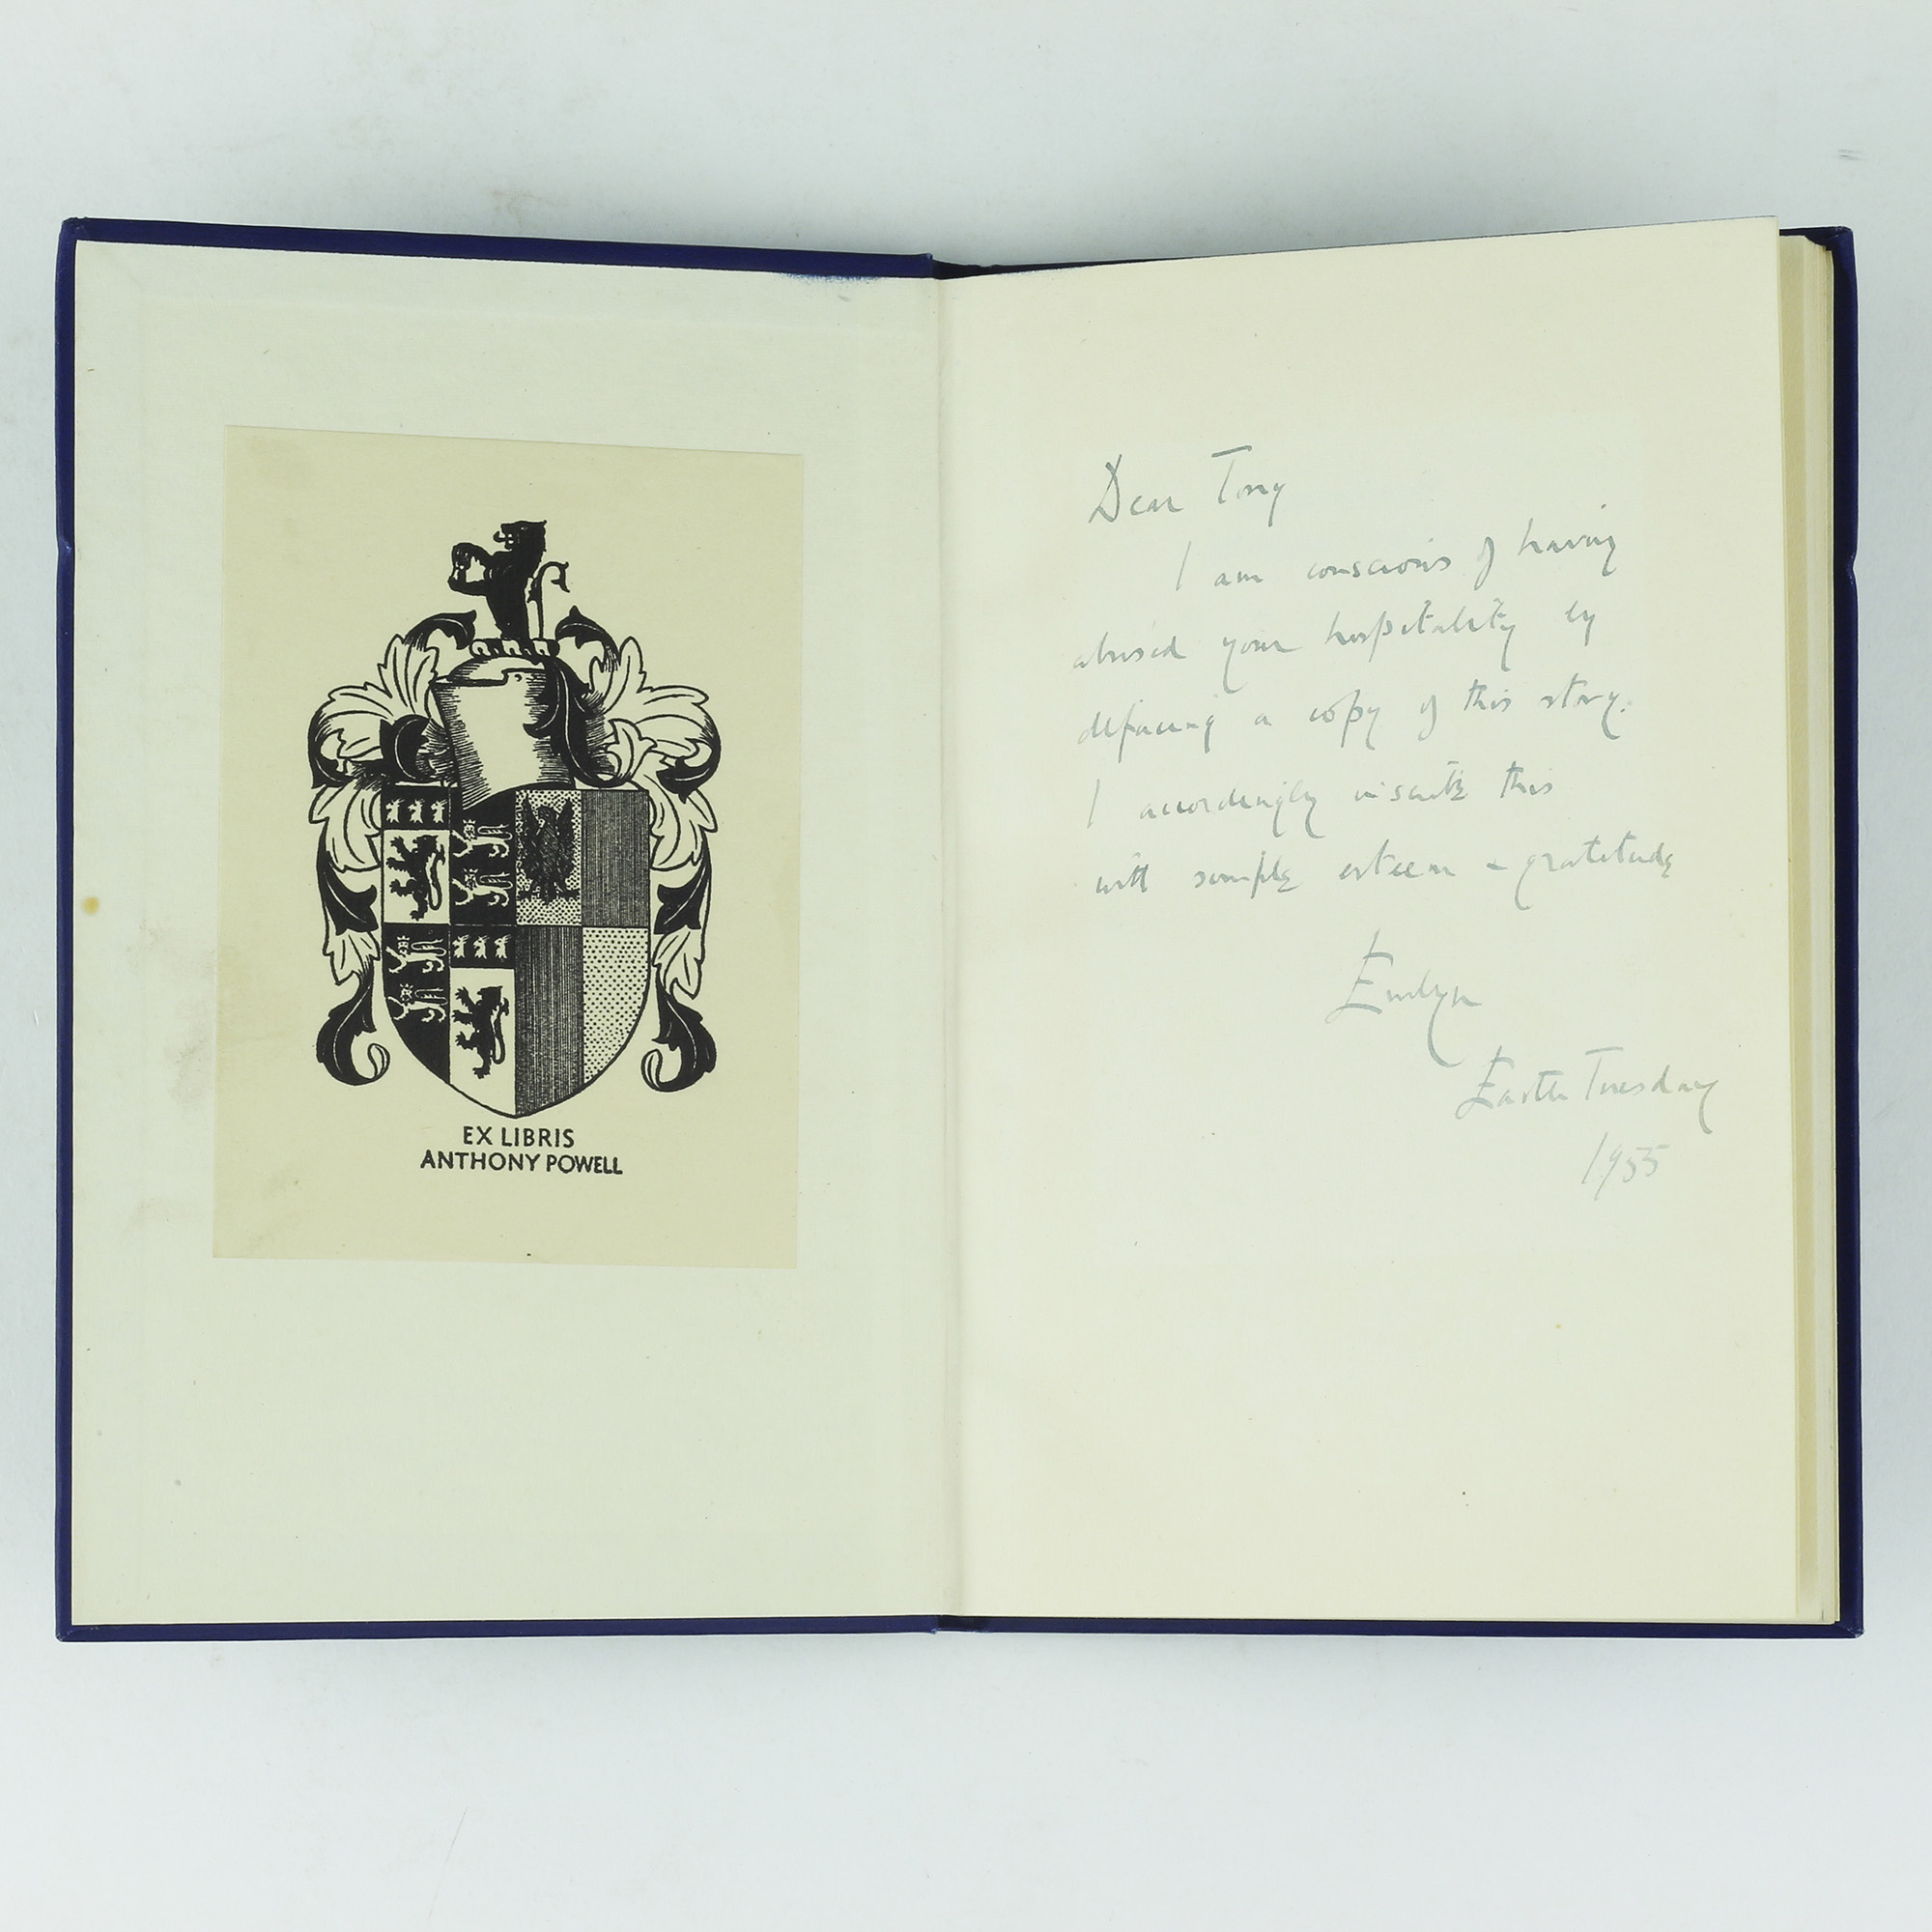 EX LIBRIS
ANTHONY POWELL
Dear Tony
I am conscious of having
abused your hospitality by
defacing a copy of this story.
I accordingly inscribe this
with simple esteem & gratitude
Evelyn
Easter Tuesday
1955